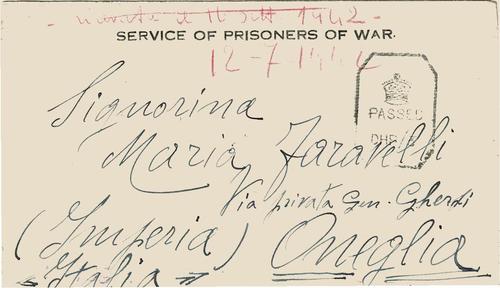 - ricevuta il 11 Sett 1942 -
SERVICE OF PRISONERS OF WAR.
12-7-1942
PASSED
Signorina
Maria Faravelli
Via privata Gen. Gherzi
(Imperia) Oneglia
Italia